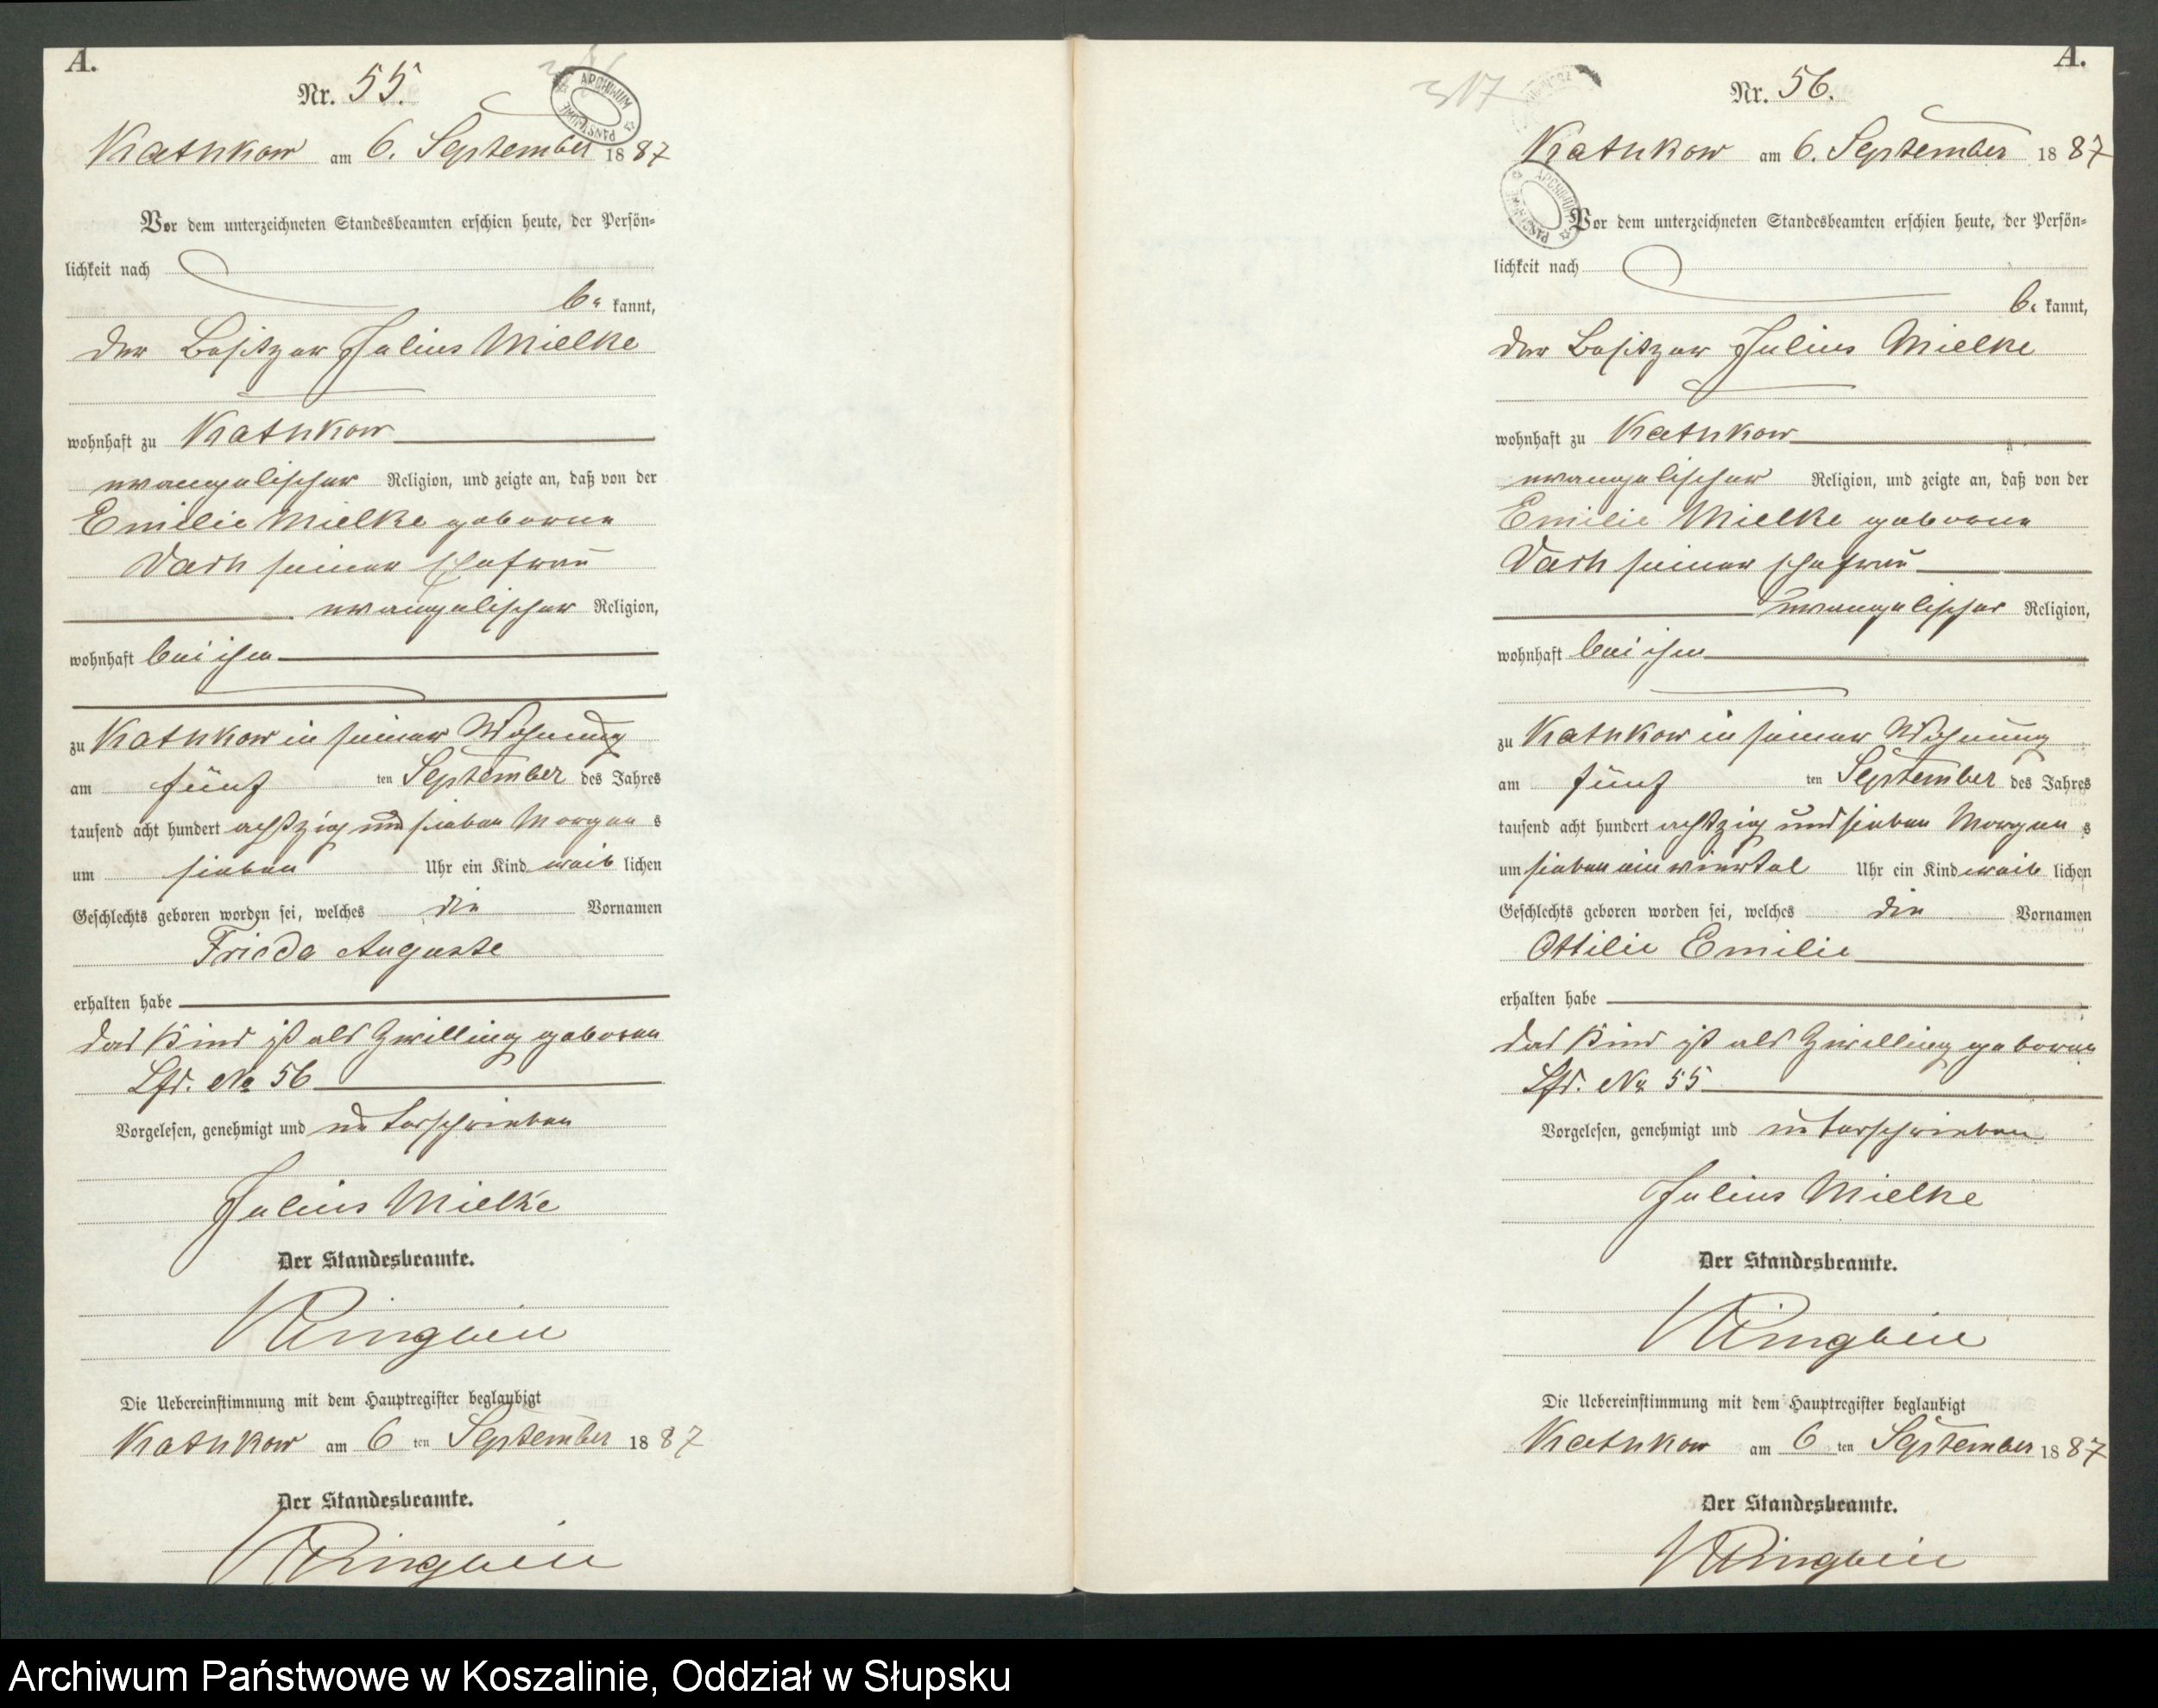 A.
Nr. 55.
Kathkow am 6. September 1887
Vor dem unterzeichneten Standesbeamten erschien heute, der Persön=
lichkeit nach
be kannt,
der Besitzer Julius Mielke
wohnhaft zu Kathkow
evangelischer Religion, und zeigte an, daß von der
Emilie Mielke geborene
seiner Ehefrau
evangelischer Religion,
wohnhaft bei ihm
zu Kathkow in seiner Wohnung
am fünf ten September des Jahres
tausend acht hundert achtzig und sieben Morgen s
um sieben Uhr ein Kind weib lichen
Geschlechts geboren worden sei, welches die Vornamen
Frieda Auguste
erhalten habe
Das Kind ist als Zwilling geboren
Lfd. No 56
Vorgelesen, genehmigt und unterschrieben
Julius Mielke
Der Standesbeamte.
Die Uebereinstimmung mit dem Hauptregister beglaubigt
Kathkow am 6 ten September 1887
Der Standesbeamte.
A.
317
Nr. 56.
Kathkow am 6. September 1887
Vor dem unterzeichneten Standesbeamten erschien heute, der Persön=
lichkeit nach
be kannt,
der Besitzer Julius Mielke
wohnhaft zu Kathkow
evangelischer Religion, und zeigte an, daß von der
Emilie Mielke geborene
seiner Ehefrau
evangelischer Religion,
wohnhaft bei ihm
zu Kathkow in seiner Wohnung
am fünf ten September des Jahres
tausend acht hundert achtzig und sieben Morgen s
um sieben ein viertel Uhr ein Kind weib lichen
Geschlechts geboren worden sei, welches die Vornamen
Ottilie Emilie
erhalten habe
Das Kind ist als Zwilling geboren
Lfd. No 55
Vorgelesen, genehmigt und unterschrieben
Julius Mielke
Der Standesbeamte.
Die Uebereinstimmung mit dem Hauptregister beglaubigt
Kathkow am 6 ten September 1887
Der Standesbeamte.
Archiwum Państwowe w Koszalinie, Oddział w Słupsku